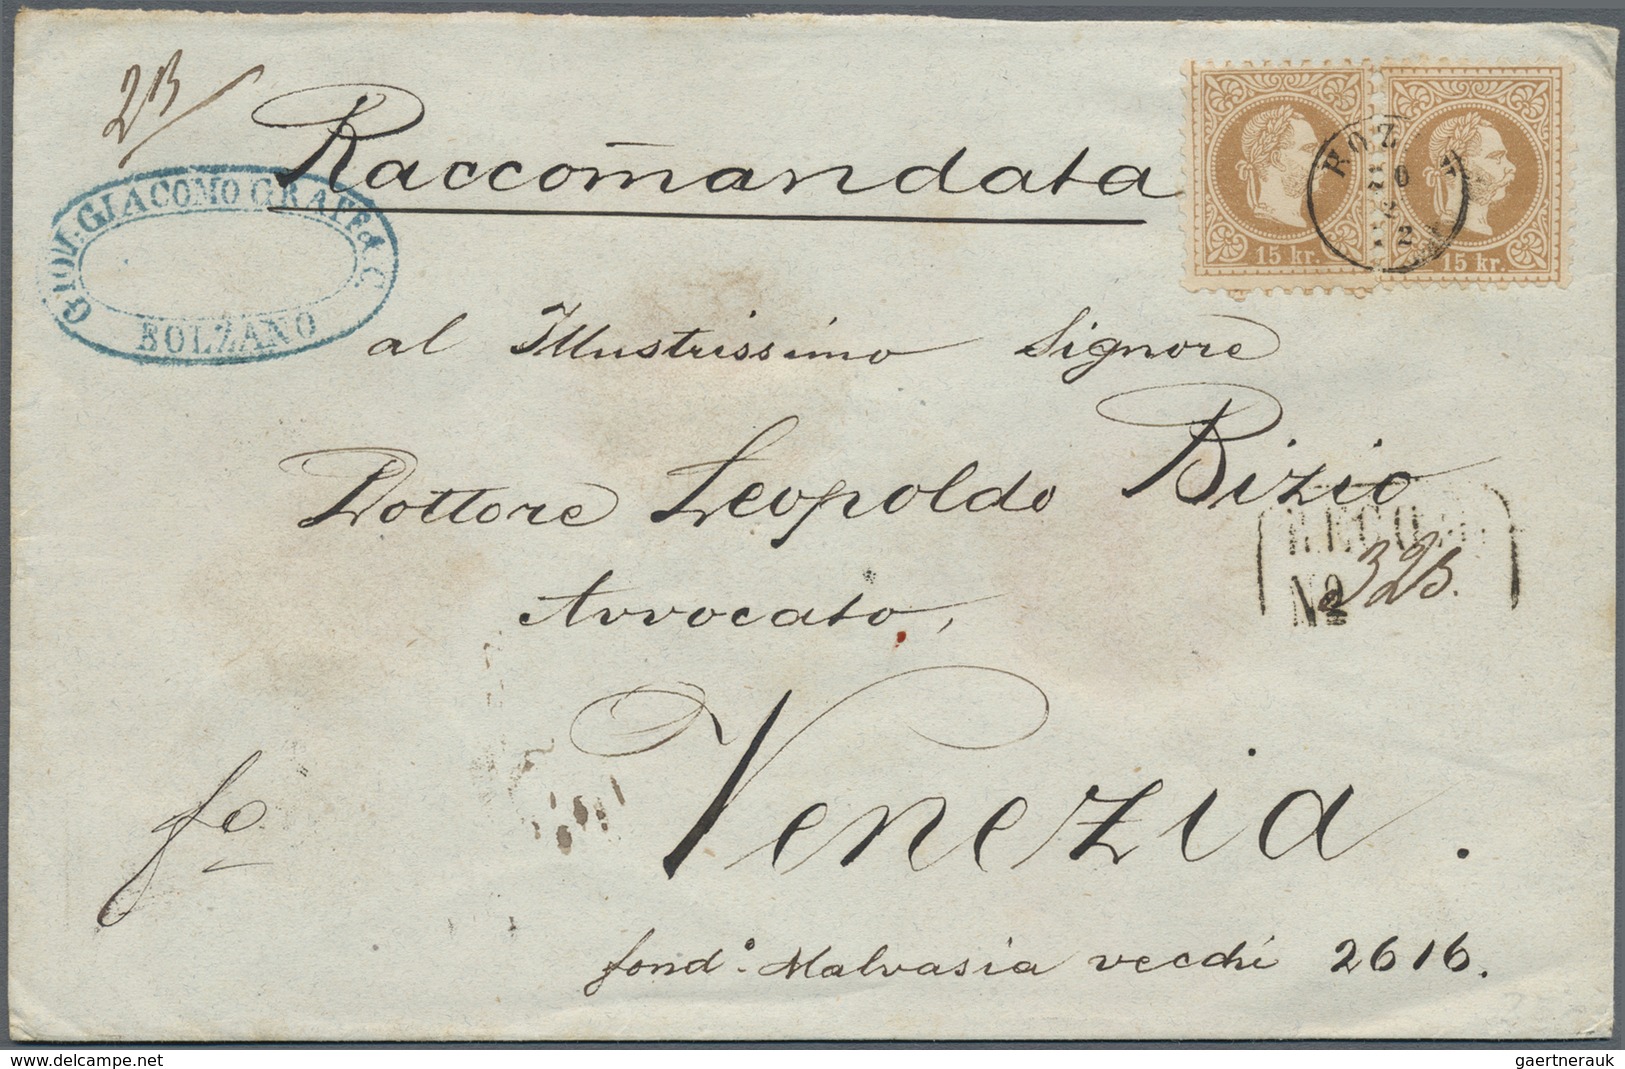 Raccom̄andata
GIOV. GIACOMO GRAFF & C.
BOLZANO
15 kr.
15 kr.
BOZ
al Illustrissimo Signore
Dottore Leopoldo Bizio
RECOM.
No
Avvocato,
Venezia.
fo
fond.o Malvasia vecchi 2616.
delcampe.net
gaertnerauk